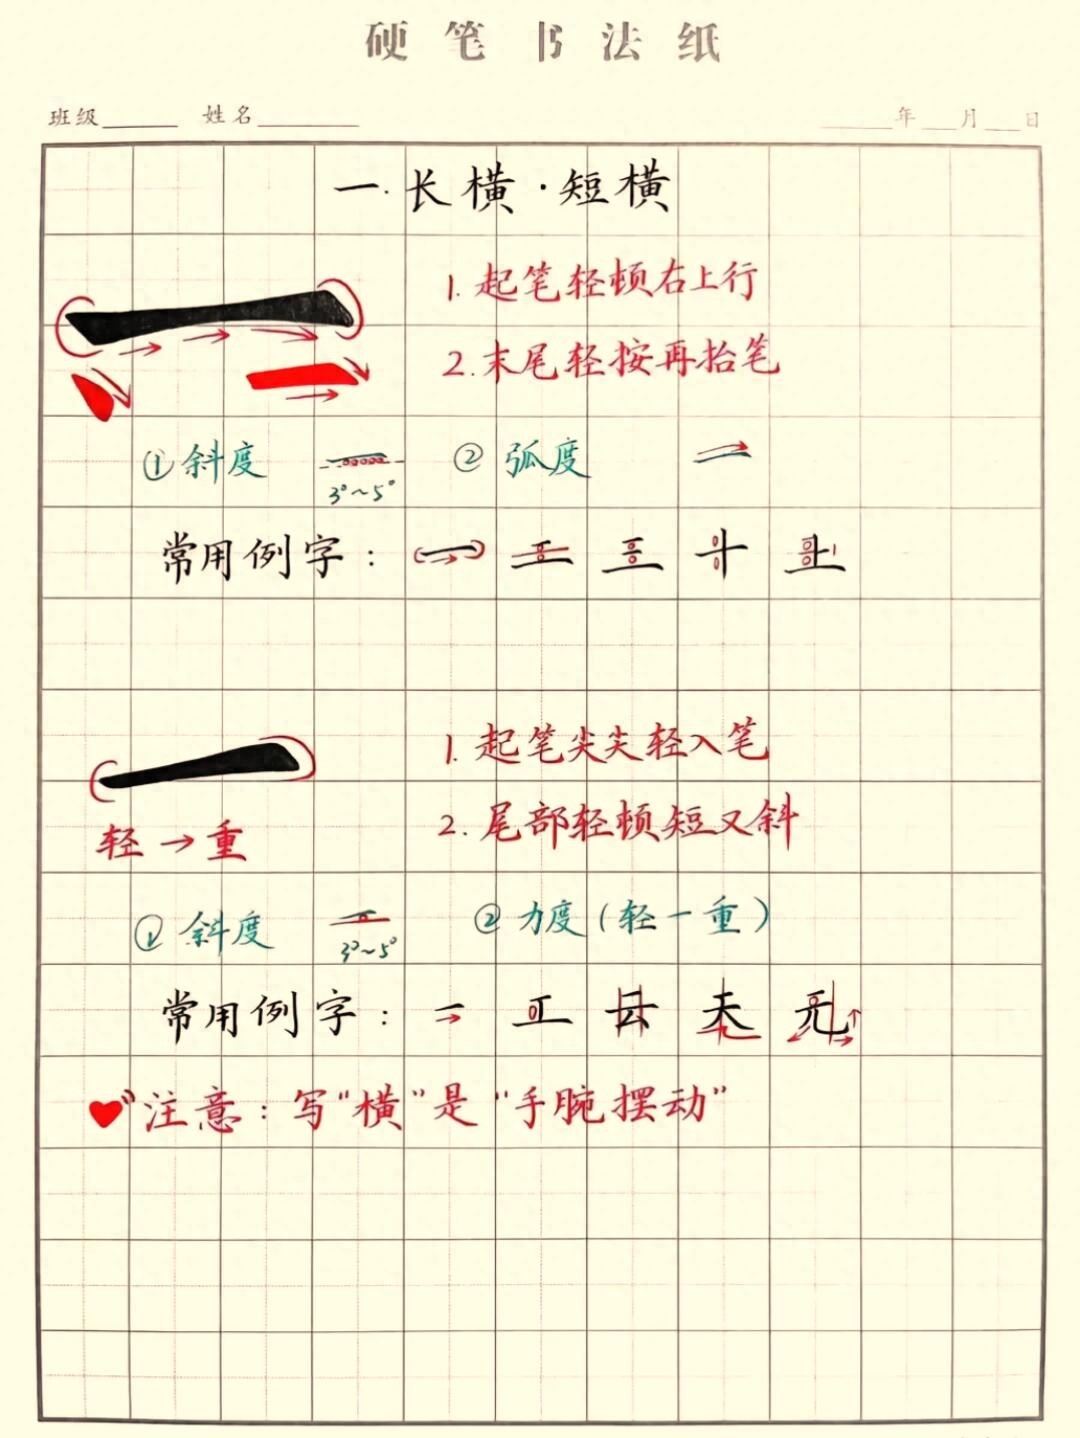 硬笔书法纸
班级 姓名 年 月 日
一.长横·短横
1.起笔轻顿右上行
2.末尾轻按再抬笔
①斜度 3°~5° ②弧度
常用例字:一 二 三 十 上
1.起笔尖尖轻入笔
2.尾部轻顿短又斜
轻→重
①斜度 3°~5° ②力度(轻一重)
常用例字: 工 云 天 无
注意:写"横"是"手腕摆动"